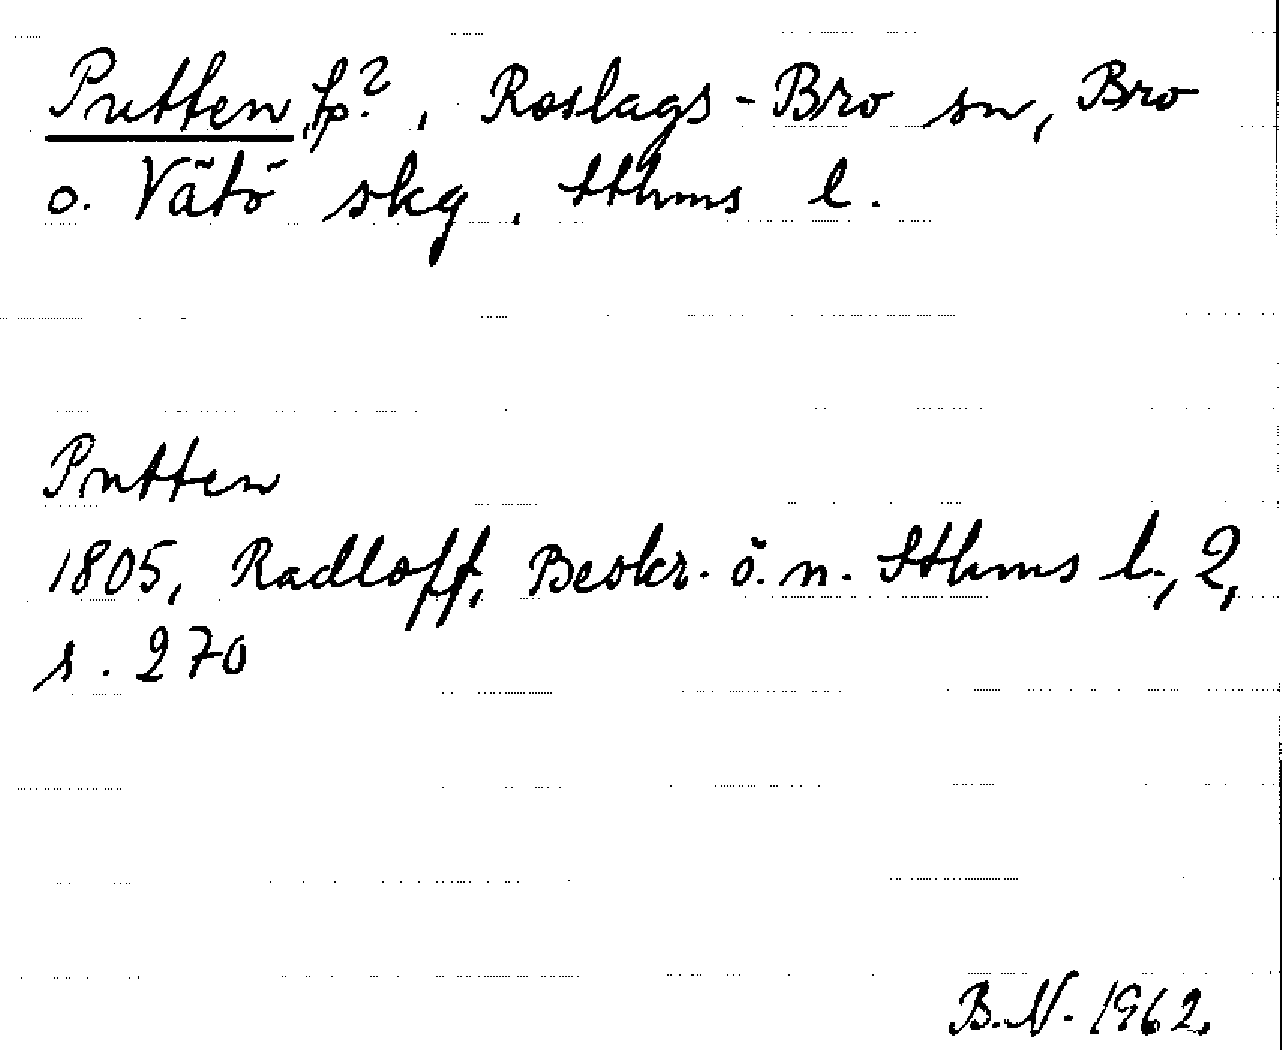 Putten, tp?, Roslags-Bro sn, Bro
o. Vätö skg, Sthms l.
Putten
1805, Radloff, Beskr. ö. n. Sthms l., 2,
s. 270
B.N. 1962.